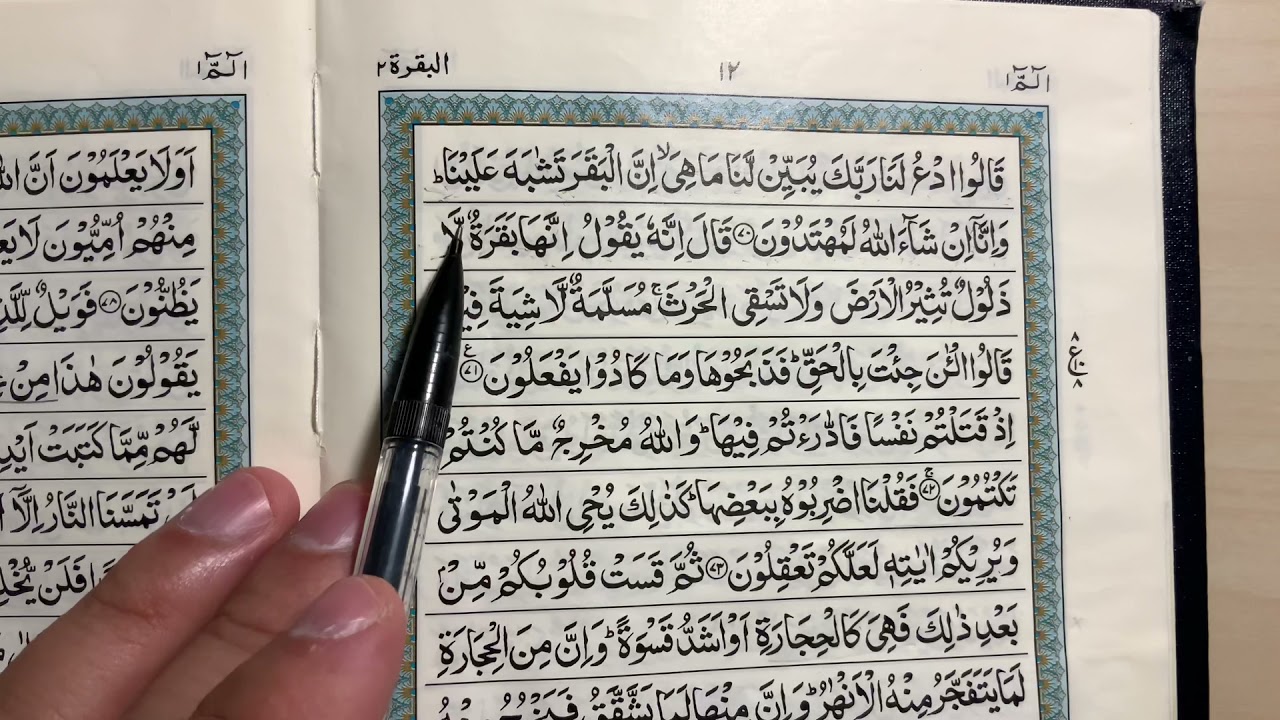 الٓمّٓ ۱
۱۲
البقرة ۲
قَالُوا ادْعُ لَنَا رَبَّكَ يُبَيِّنْ لَّنَا مَا هِىَ ۙ اِنَّ الْبَقَرَ تَشٰبَهَ عَلَيْنَا ؕ
وَاِنَّاۤ اِنْ شَآءَ اللّٰهُ لَمُهْتَدُوْنَ ﴿۷۰﴾ قَالَ اِنَّهٗ يَقُوْلُ اِنَّهَا بَقَرَةٌ لَّا
ذَلُوْلٌ تُثِيْرُ الْاَرْضَ وَلَا تَسْقِى الْحَرْثَ ۚ مُسَلَّمَةٌ لَّا شِيَةَ
قَالُوا الْـٰٔنَ جِئْتَ بِالْحَقِّ ؕ فَذَبَحُوْهَا وَمَا كَادُوْا يَفْعَلُوْنَ ﴿۷۱﴾ ع
۸
ع ۱۰
۸
اِذْ قَتَلْتُمْ نَفْسًا فَادّٰرَءْتُمْ فِيْهَا ؕ وَاللّٰهُ مُخْرِجٌ مَّا كُنْتُمْ
تَكْتُمُوْنَ ۚ﴿۷۲﴾ فَقُلْنَا اضْرِبُوْهُ بِبَعْضِهَا ؕ كَذٰلِكَ يُحْىِ اللّٰهُ الْمَوْتٰى
وَيُرِيْكُمْ اٰيٰتِهٖ لَعَلَّكُمْ تَعْقِلُوْنَ ﴿۷۳﴾ ثُمَّ قَسَتْ قُلُوْبُكُمْ مِّنْۢ
بَعْدِ ذٰلِكَ فَهِىَ كَالْحِجَارَةِ اَوْ اَشَدُّ قَسْوَةً ؕ وَاِنَّ مِنَ الْحِجَارَةِ
لَمَا يَتَفَجَّرُ مِنْهُ الْاَنْهٰرُ ؕ وَاِنَّ مِنْهَا لَمَا يَشَّقَّقُ فَيَخْرُجُ مِنْهُ
الٓمّٓ ۱
اَوَلَا يَعْلَمُوْنَ اَنَّ
مِنْهُمْ اُمِّيُّوْنَ لَا
يَظُنُّوْنَ ﴿۷۸﴾ فَوَيْلٌ
يَقُوْلُوْنَ هٰذَا مِنْ
لَّهُمْ مِّمَّا كَتَبَتْ
تَمَسَّنَا النَّارُ اِلَّاۤ
فَلَنْ